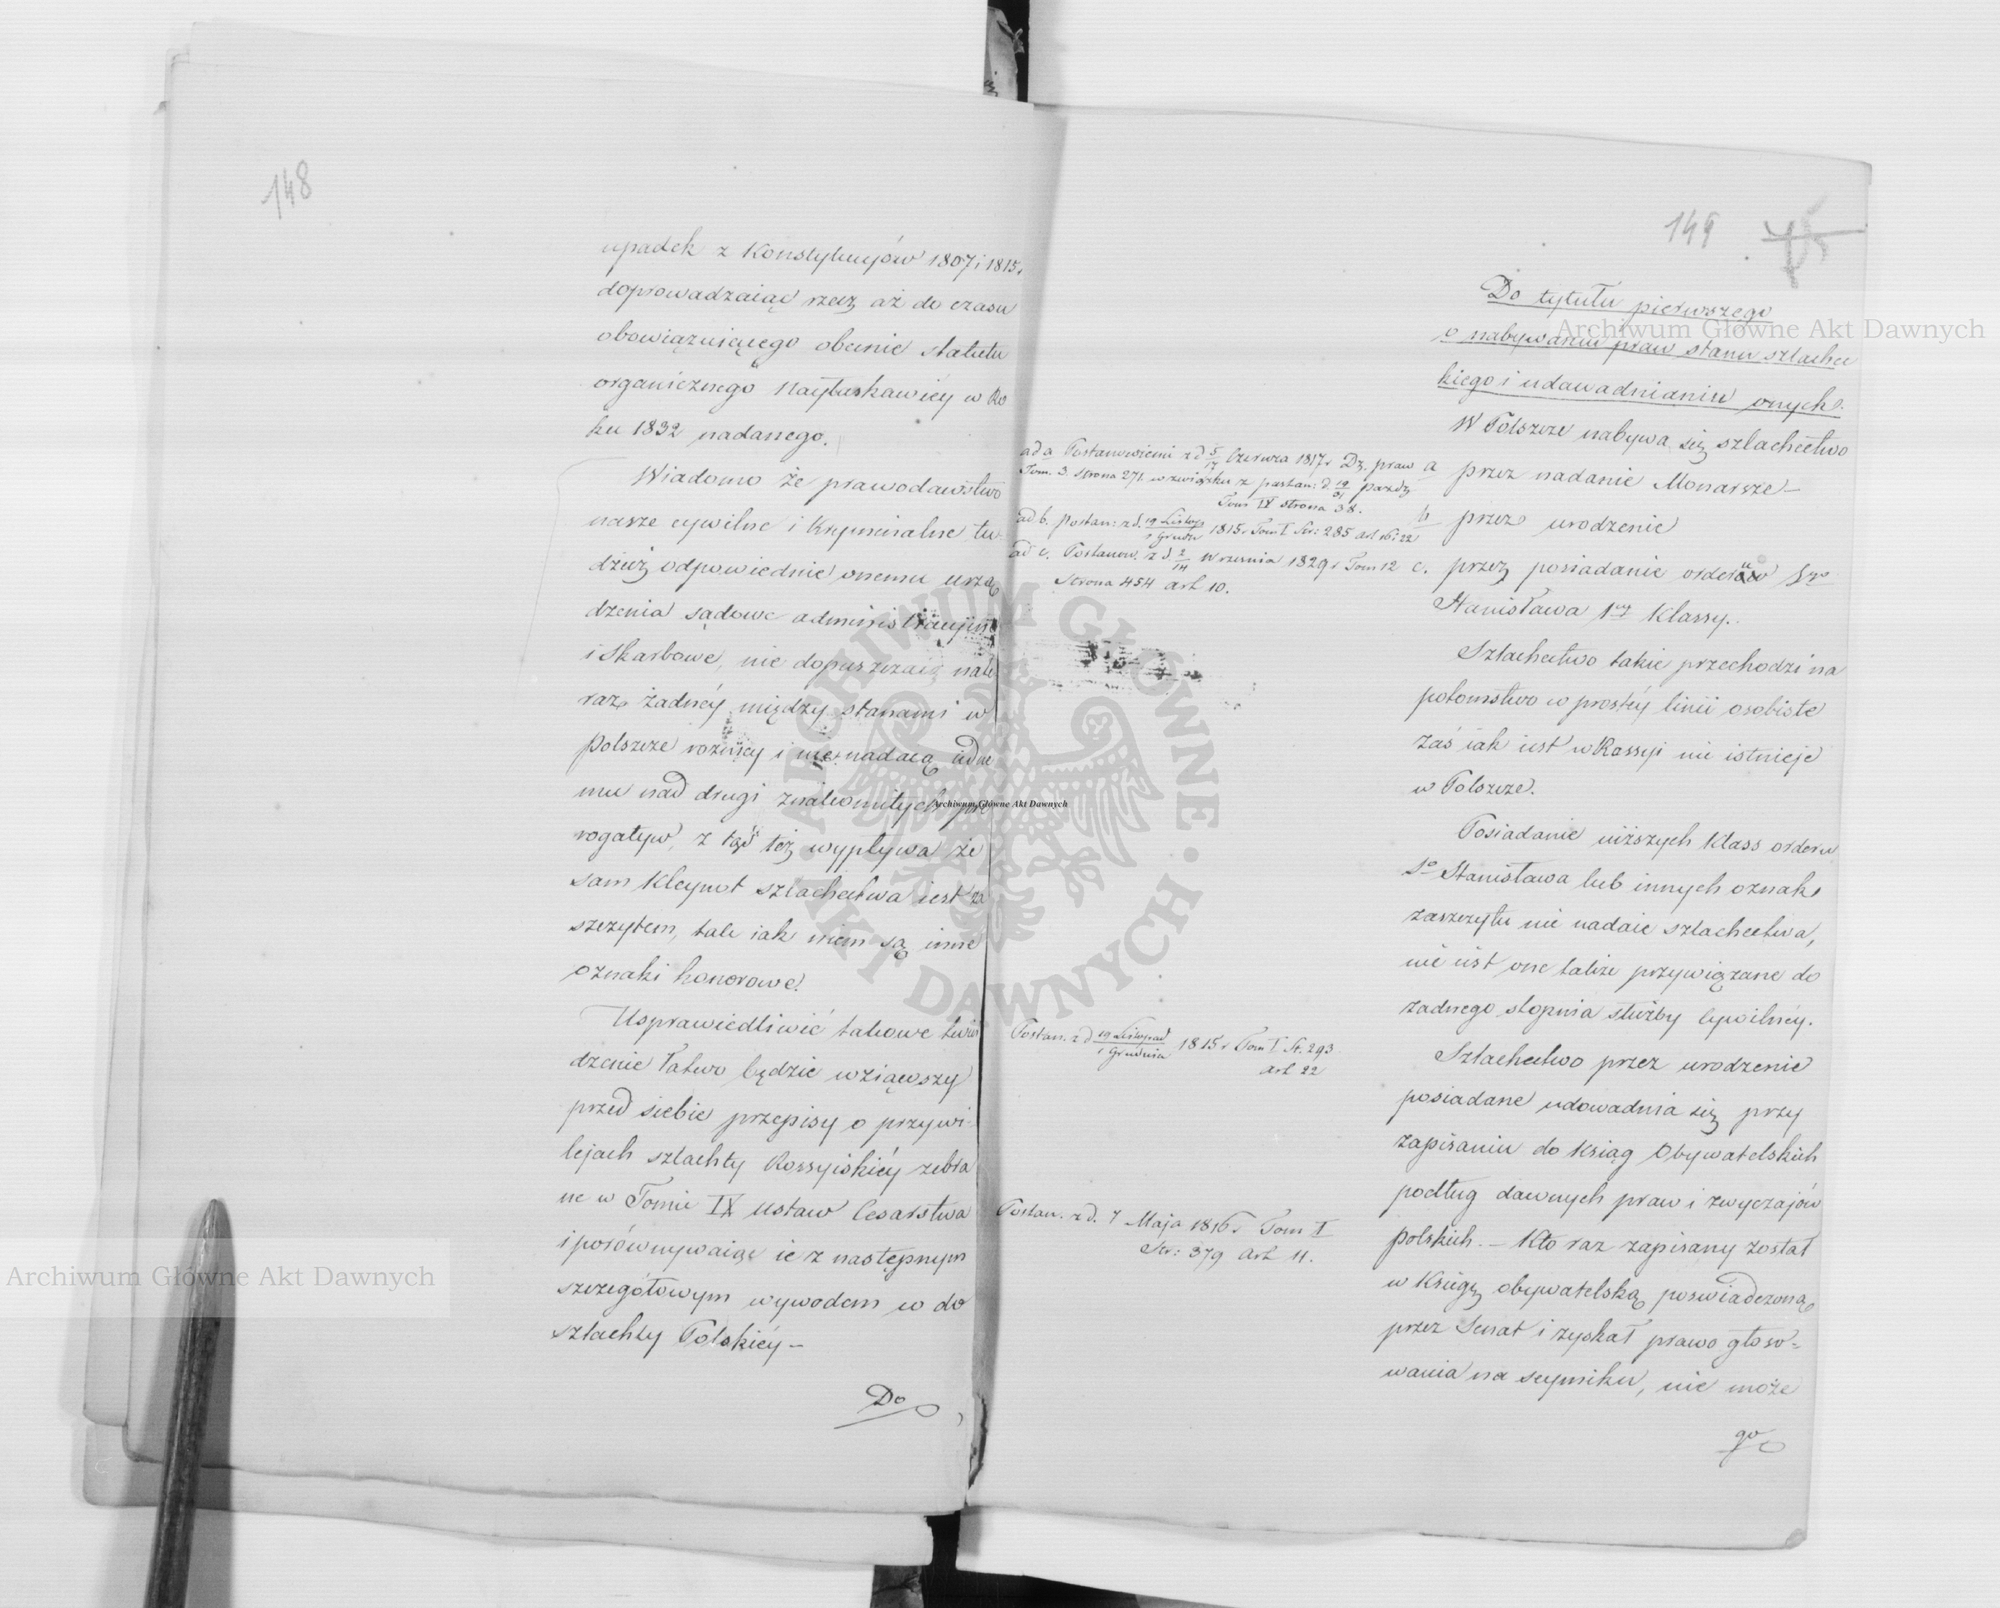 148
upadek z Konstytucyów 1807 i 1815r
doprowadzaiąc rzecz aż do czasu
obowiązuiącego obecnie statutu
organicznego Nayłaskawiéy w Ro
ku 1832 nadanego.
Wiadomo że prawodawstwo
nasze cywilne i kryminalne tu-
dzież odpowiednie onemu urzą
dzenia sądowe administracyjne
i skarbowe, nie dopuszczaią
raz żadnéy między stanami w
Polszcze rożnicy i nie nadaią
mu nad drugi znakomitych pre
rogatyw, z też wypływa że
sam Kleynot szlachectwa iest za
szczytem, tak iak niem są inne
oznaki honorowe.
Usprawiedliwić takowe twier
dzenie łatwo będzie wziąwszy
przed siebie przepisy o przywi-
lejach szlachty Rossyiskiéy zebra
ne w Tomie IX ustaw Cesarstwa
i porównywaiąc ie z następnym
szczegółowym wywodem w do
szlachty Polskiéy –
Do
149
Do tytułu pierwszego
o nabywaniu praw stanu szlachec
kiego i udawadnianiu onych.
W Polszcze nabywa się szlachectwo
a przez nadanie Monarsze –
b przez urodzenie
c. przez posiadanie orderu Sgo
Stanisława 1ey Klassy.
Szlachectwo takie przechodzi na
potomstwo w prostéy linii osobiste
zaś iak iest w Rossyi nie istnieje
w Polszcze.
Posiadanie niższych Klass orderu
So Stanisława lub innych oznak
zaszczytu nie nadaie szlachectwa,
nie iest one także przywiązane do
żadnego stopnia służby Cywilnéy.
Szlachectwo przez urodzenie
posiadane udowadnia się przy
zapisaniu do Ksiąg Obywatelskich
podług dawnych praw i zwyczajów
polskich. – Kto raz zapisany został
w Księgę obywatelską poswiadczoną
przez Senat i zyskał prawo głoso-
wania na seymiku, nie może
go
ad a Postanowieni z d 5/17 Czerwca 1817r Dz. praw
Tom. 3. strona 271. w związku z postan: d. 19/31 pazdz
Tom IV strona 38.
ad b. Postan: z d. 19 Listop/1 Grudn 1815r Tom I Str: 285 art 16 i 22
ad c. Postanow. z d 2/14 Wrzesnia 1829r Tom 12
Strona 454 art 10.
Postan. z d 19 Listopad/1 Grudnia 1815r Tom I St. 293
art 22
Postan. z d. 7 Maja 1816r Tom I
Str: 379 Art 11.
Archiwum Główne Akt Dawnych
Archiwum Główne Akt Dawnych
Archiwum Główne Akt Dawnych
ARCHIWUM GŁÓWNE · AKT DAWNYCH ·